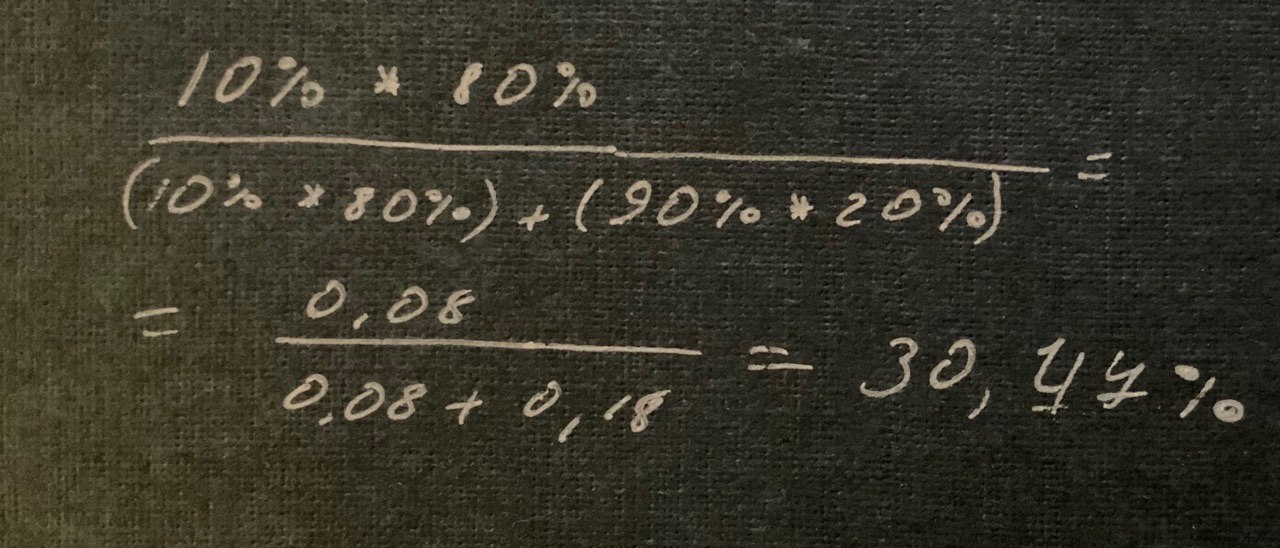 10% * 80%
(10% * 80%) + (90% * 20%) =
= 0,08
0,08 + 0,18 = 30,44%